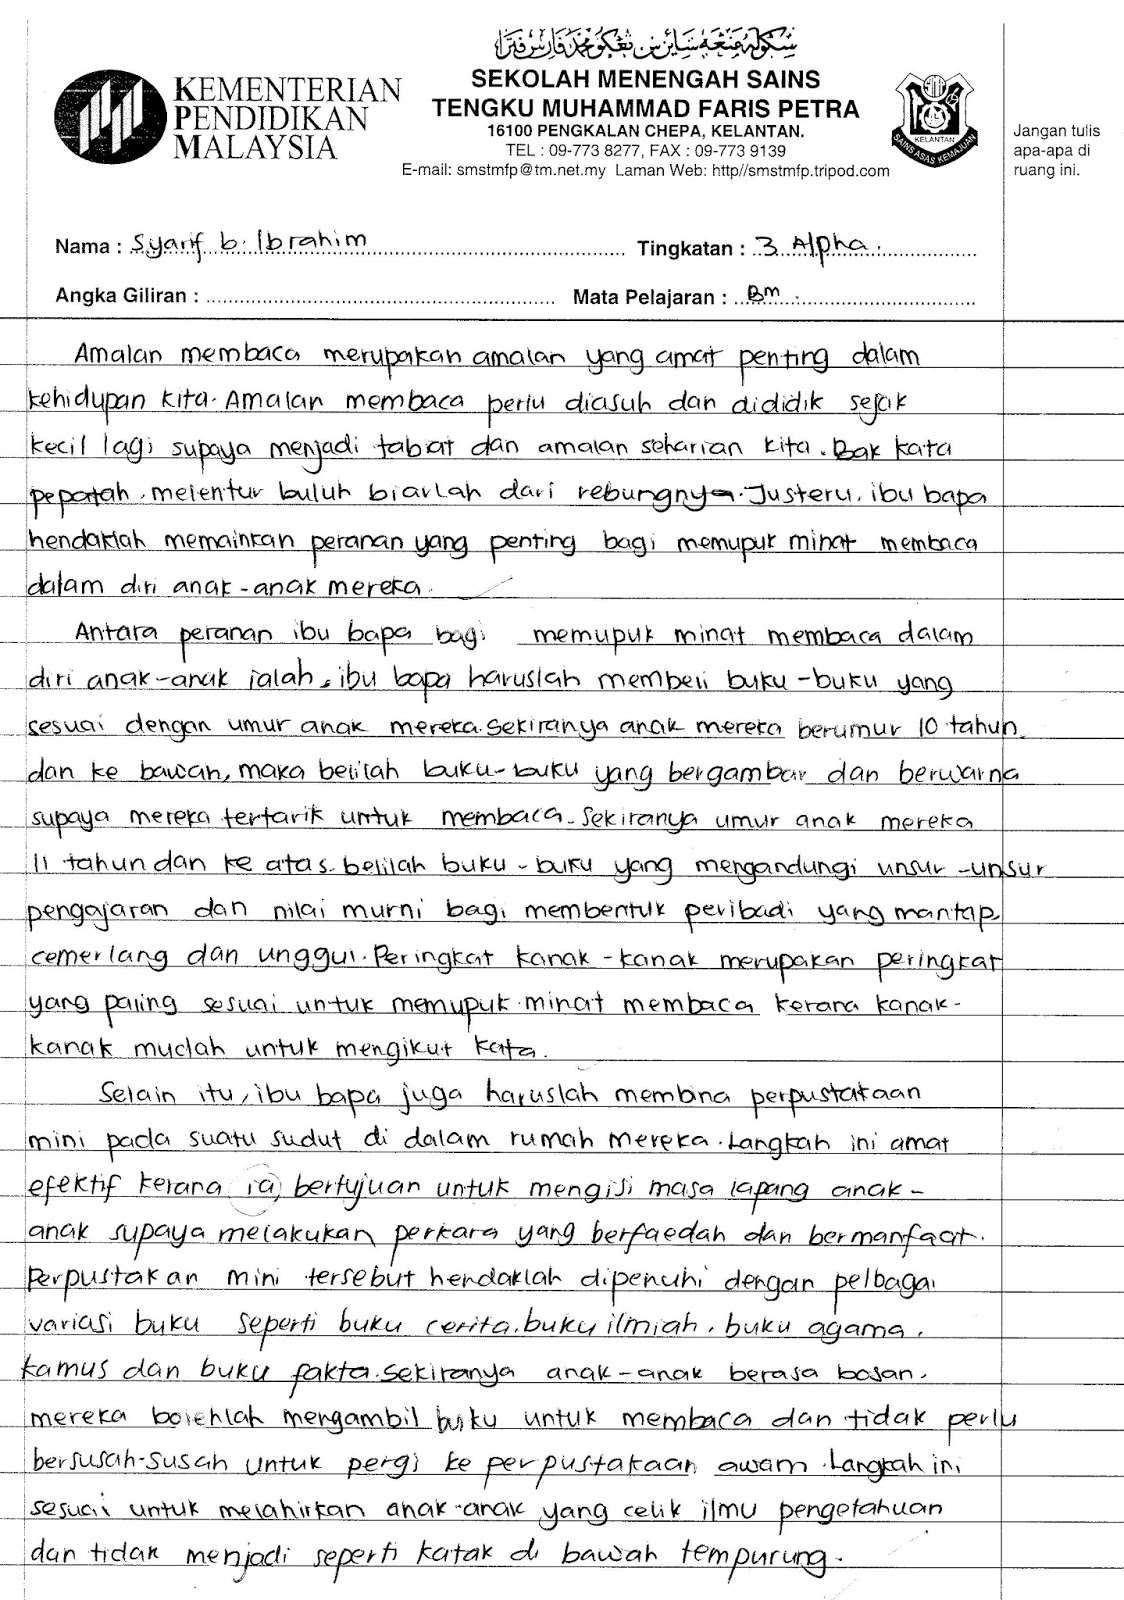 سکوله منڠه ساينس تڠكو محمد فارس فترا
KEMENTERIAN
PENDIDIKAN
MALAYSIA
SEKOLAH MENENGAH SAINS
TENGKU MUHAMMAD FARIS PETRA
16100 PENGKALAN CHEPA, KELANTAN.
TEL : 09-773 8277, FAX : 09-773 9139
E-mail: smstmfp@tm.net.my Laman Web: http//smstmfp.tripod.com
KELANTAN
SAINS ASAS KEMAJUAN
Jangan tulis
apa-apa di
ruang ini.
Nama : Syarif b. Ibrahim Tingkatan : 3 Alpha.
Angka Giliran : Mata Pelajaran : BM
Amalan membaca merupakan amalan yang amat penting dalam
kehidupan kita. Amalan membaca perlu diasuh dan dididik sejak
kecil lagi supaya menjadi tabiat dan amalan seharian kita. Bak kata
pepatah, melentur buluh biarlah dari rebungnya. Justeru, ibu bapa
hendaklah memainkan peranan yang penting bagi memupuk minat membaca
dalam diri anak-anak mereka.
Antara peranan ibu bapa bagi memupuk minat membaca dalam
diri anak-anak ialah, ibu bapa haruslah membeli buku-buku yang
sesuai dengan umur anak mereka. Sekiranya anak mereka berumur 10 tahun
dan ke bawah, maka belilah buku-buku yang bergambar dan berwarna
supaya mereka tertarik untuk membaca. Sekiranya umur anak mereka
11 tahun dan ke atas, belilah buku-buku yang mengandungi unsur-unsur
pengajaran dan nilai murni bagi membentuk peribadi yang mantap,
cemerlang dan unggul. Peringkat kanak-kanak merupakan peringkat
yang paling sesuai untuk memupuk minat membaca kerana kanak-
kanak mudah untuk mengikut kata.
Selain itu, ibu bapa juga haruslah membina perpustakaan
mini pada suatu sudut di dalam rumah mereka. Langkah ini amat
efektif kerana ia bertujuan untuk mengisi masa lapang anak-
anak supaya melakukan perkara yang berfaedah dan bermanfaat.
Perpustakan mini tersebut hendaklah dipenuhi dengan pelbagai
variasi buku seperti buku cerita, buku ilmiah, buku agama,
kamus dan buku fakta. Sekiranya anak-anak berasa bosan,
mereka bolehlah mengambil buku untuk membaca dan tidak perlu
bersusah-susah untuk pergi ke perpustakaan awam. Langkah ini
sesuai untuk melahirkan anak-anak yang celik ilmu pengetahuan
dan tidak menjadi seperti katak di bawah tempurung.